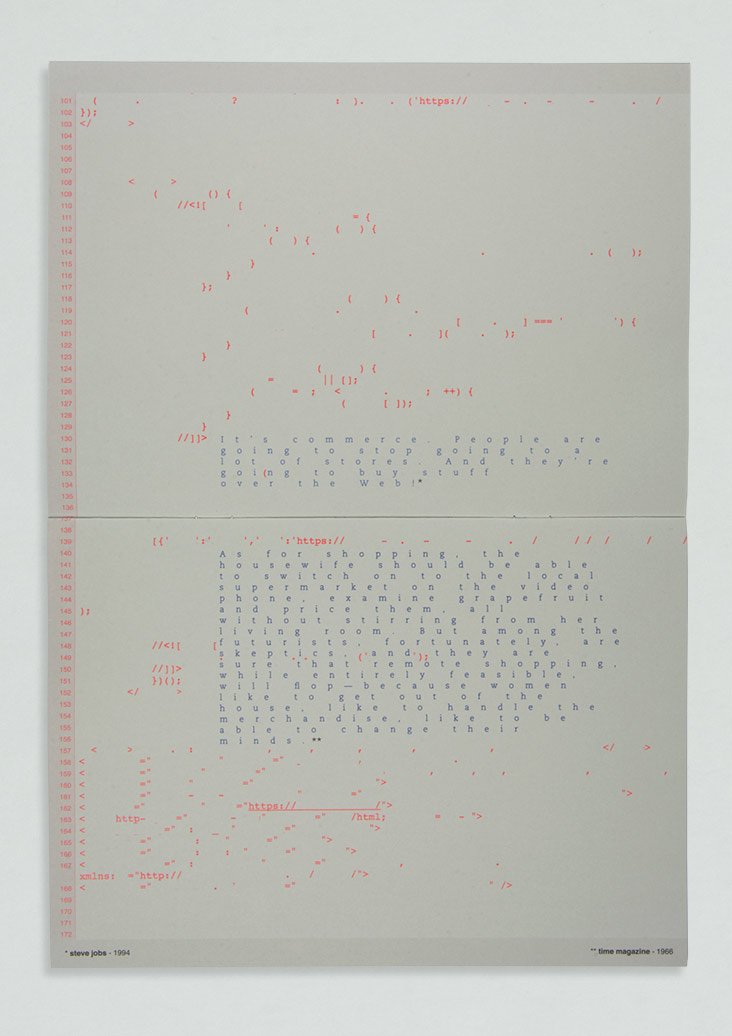 101 ( . ? : ). . ('https:// _ - . - - . /
102 });
103 </ >
104
105
106
107
108 < >
109 ( () {
110 //<![ [
111 = {
112 ' ' : ( ) {
113 ( ) {
114 . . . ( );
115 }
116 }
117 };
118 ( ) {
119 ( . .
120 [ . ] === ' ') {
121 [ . ]( . );
122 }
123 }
124 ( ) {
125 = || [];
126 ( = ; < . ; ++) {
127 ( [ ]);
128 }
129 }
130 //]]> It's commerce. People are
131 going to stop going to a
132 lot of stores. And they're
133 going to buy stuff
134 over the Web!*
135
136
137
138
139 [{' ':' ',' ':'https:// - . - - . / / / / / /
140 As for shopping, the
141 housewife should be able
142 to switch on to the local
143 supermarket on the video
144 phone, examine grapefruit
145 ); and price them, all
146 without stirring from her
147 living room. But among the
148 //<![ [ futurists, fortunately, are
149 skeptics, and they are . . ('');
150 //]]> sure that remote shopping,
151 })(); while entirely feasible,
152 </ > will flop—because women
153 like to get out of the
154 house, like to handle the
155 merchandise, like to be
156 able to change their
minds.**
157 < > . : , , , , , </ >
158 < =" " =" , .
159 < =" " =" . , , , , ,
160 < =" " =" ">
161 < =" - - " =" ">
162 < =" " ="https:// /">
163 < http- =" - " =" /html; = - ">
164 < =" : _ " =" ">
165 < =" : : " =" ">
166 < =" : : " =" ">
167 < =" : " =" , .
xmlns: ="http:// . / /">
168 < =" . ' =" " />
169
170
171
172
* steve jobs - 1994
** time magazine - 1966